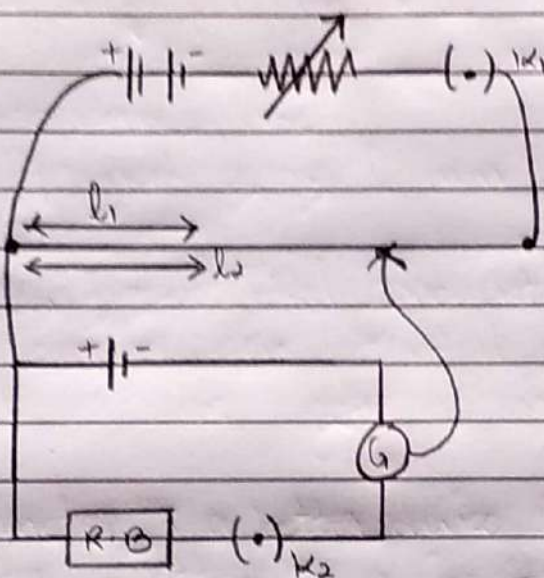 + - K₁
l₁
l₂
+ -
G
R·B K₂